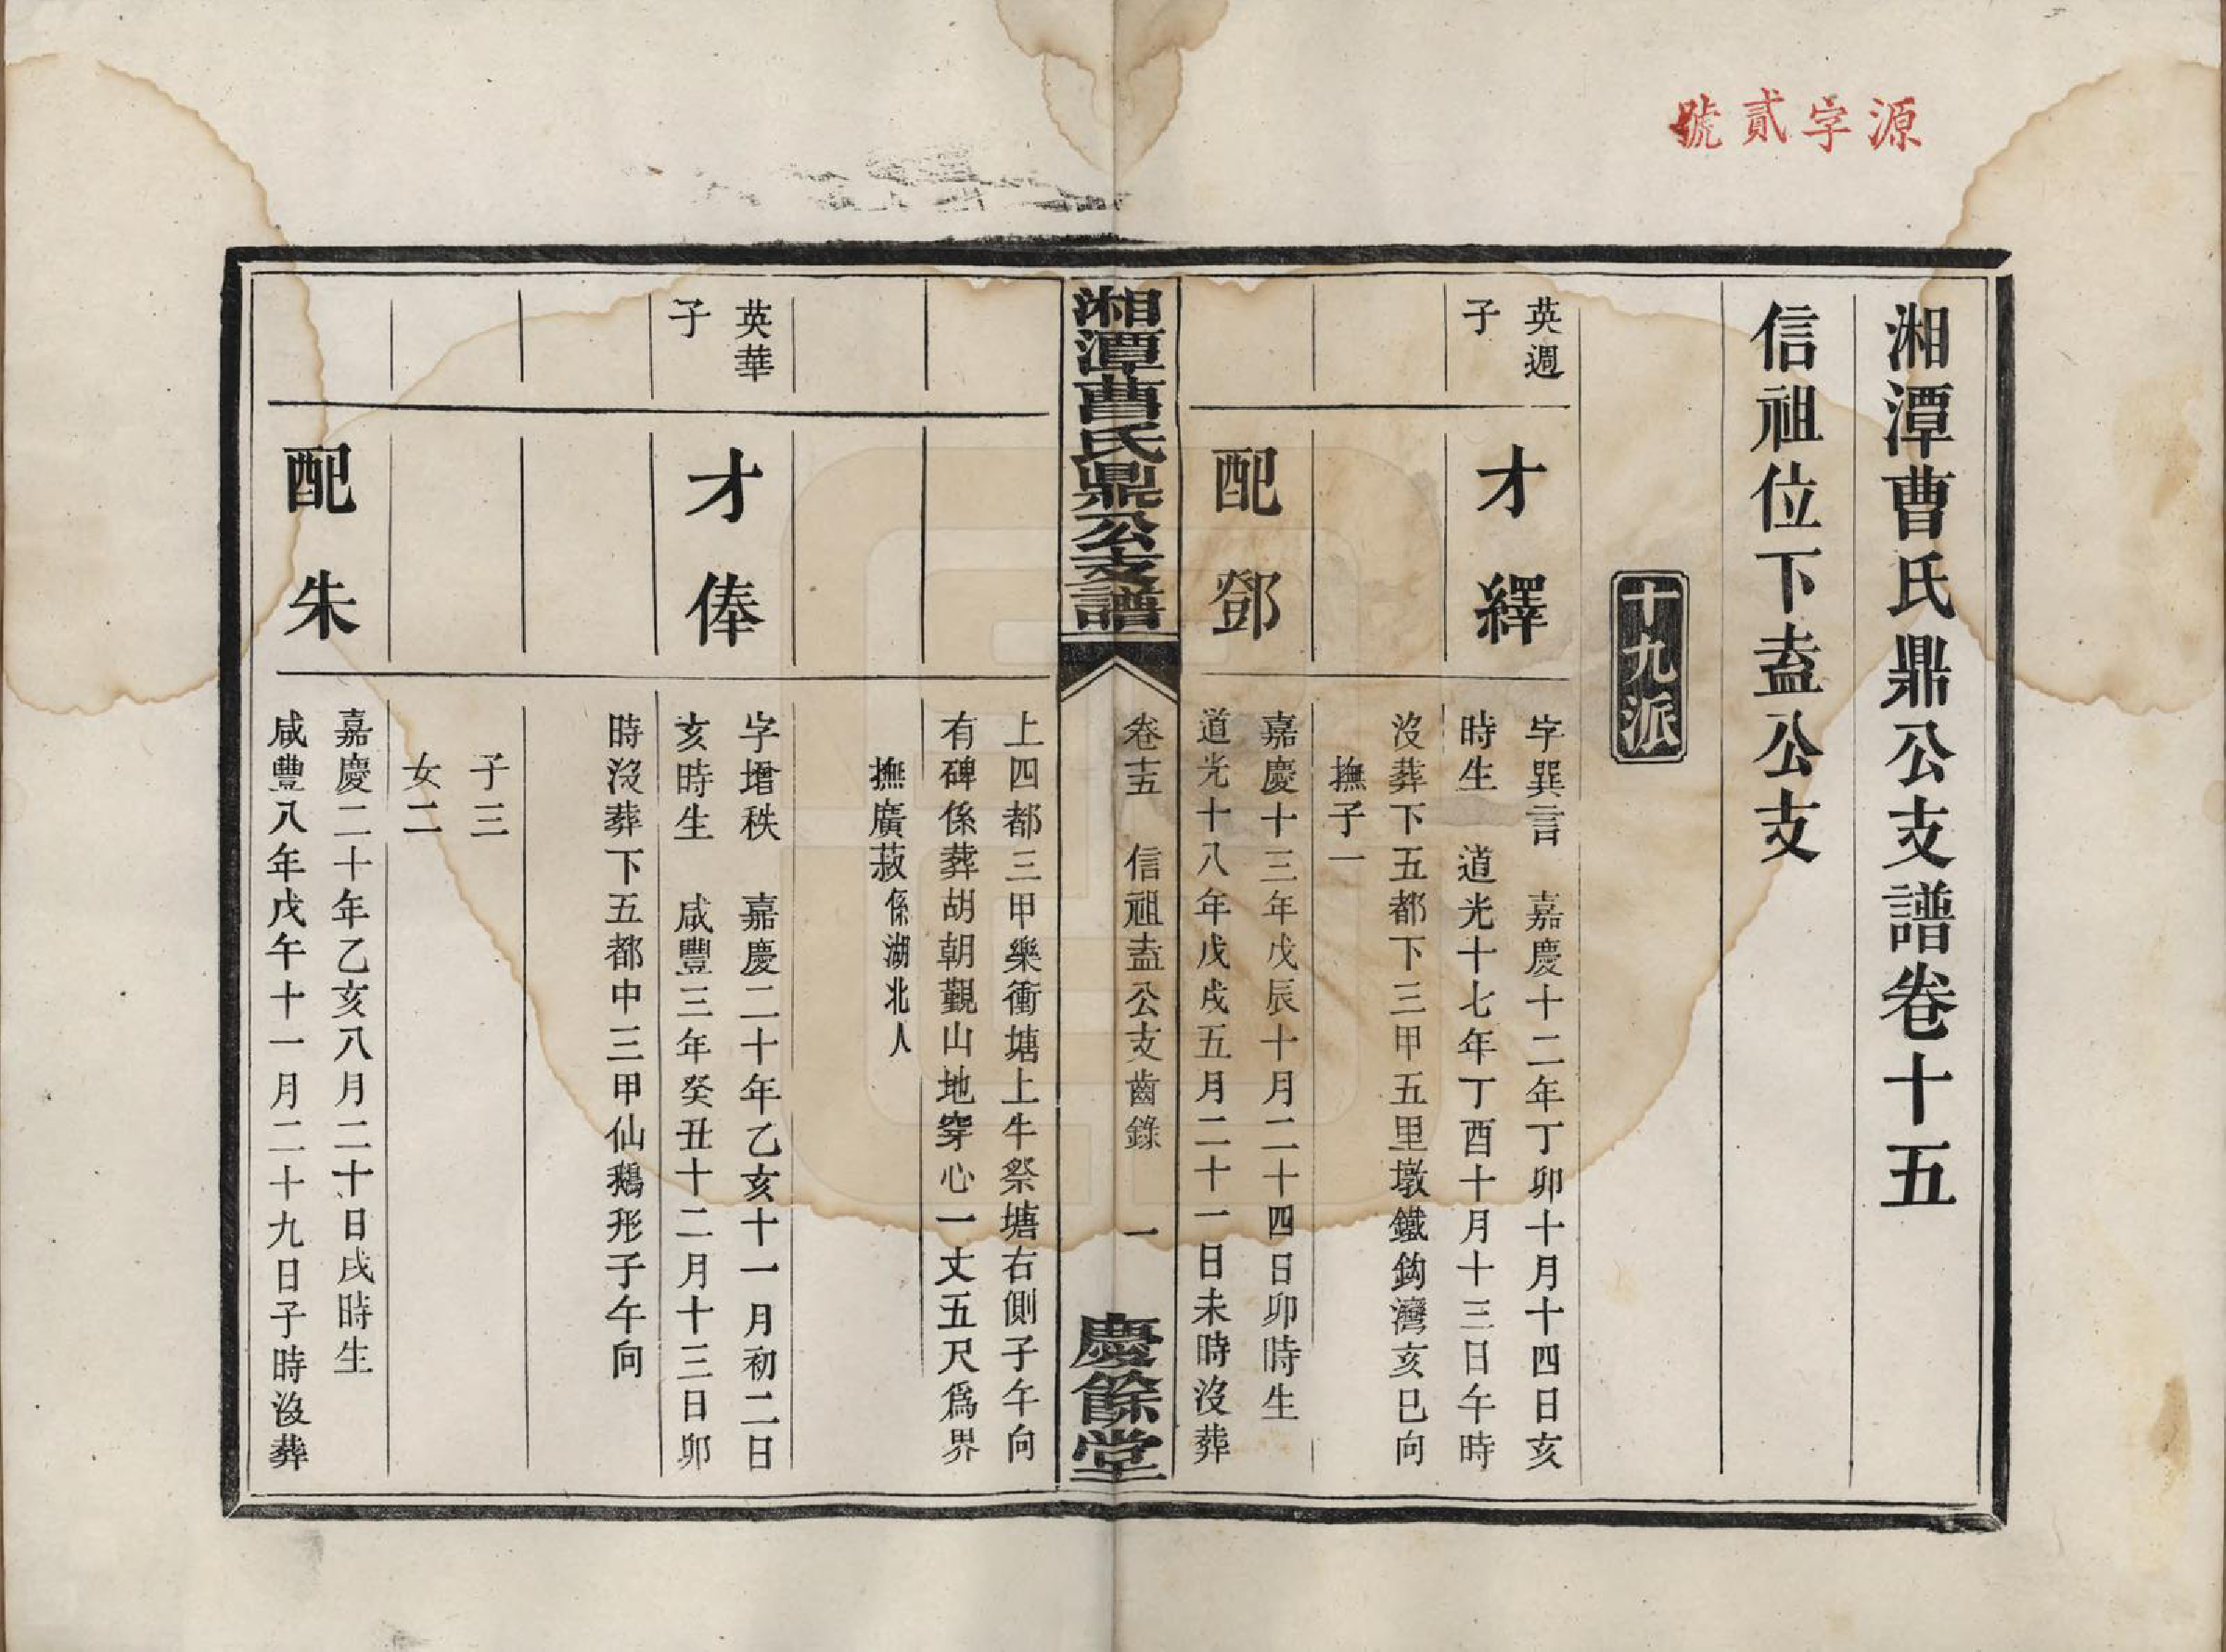 源字貳號
湘潭曹氏鼎公支譜卷十五
信祖位下盍公支
十九派
英週
子
才繹
字巽言　嘉慶十二年丁卯十月十四日亥
時生　道光十七年丁酉十月十三日午時
沒葬下五都下三甲五里墩鐵鈎灣亥巳向
撫子一
配鄧
嘉慶十三年戊辰十月二十四日卯時生
道光十八年戊戌五月二十一日未時沒葬
湘潭曹氏鼎公支譜
卷十五　信祖盍公支齒錄　一
慶餘堂
上四都三甲樂衝塘上牛祭塘右側子午向
有碑係葬胡朝觀山地穿心一丈五尺爲界
撫廣菽係湖北人
英華
子
才俸
字增秩　嘉慶二十年乙亥十一月初二日
亥時生　咸豐三年癸丑十二月十三日卯
時沒葬下五都中三甲仙鵝形子午向
子三
女二
配朱
嘉慶二十年乙亥八月二十日戌時生
咸豐八年戊午十一月二十九日子時沒葬